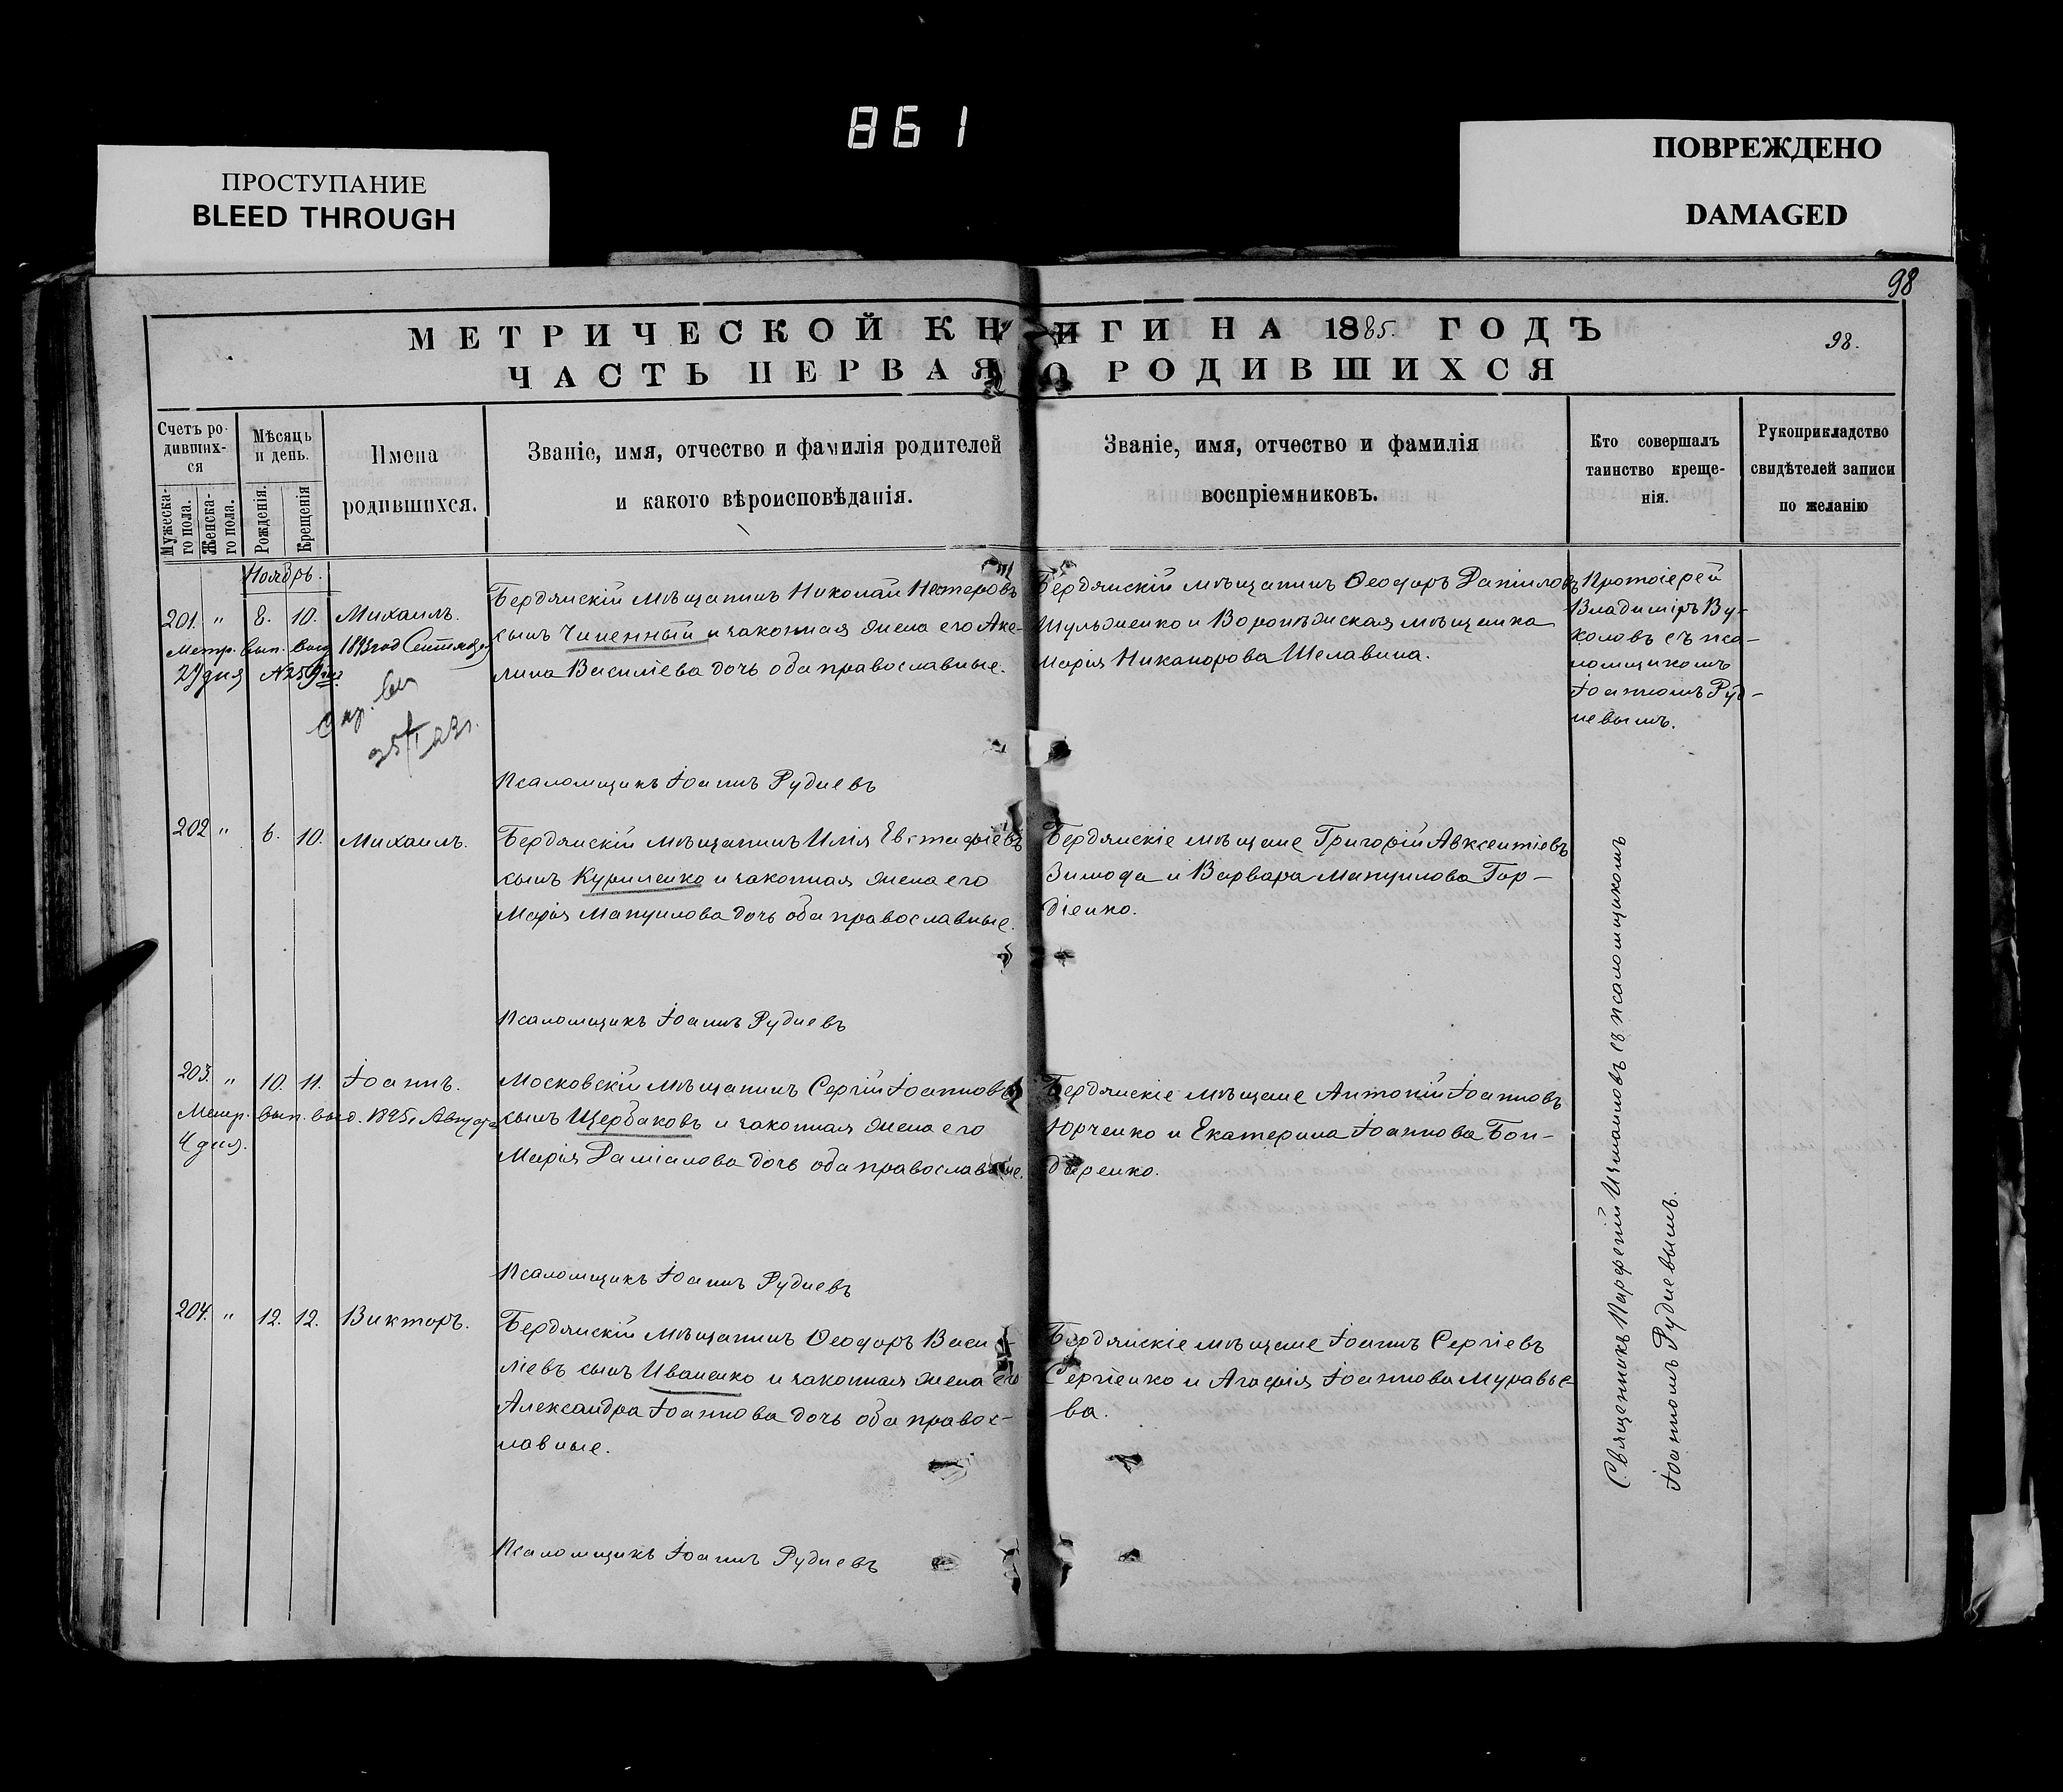 861
ПРОСТУПАНИЕ
BLEED THROUGH
ПОВРЕЖДЕНО
DAMAGED
98
МЕТРИЧЕСКОЙ КНИГИ НА 1885. ГОДЪ
98.
ЧАСТЬ ПЕРВАЯ О РОДИВШИХСЯ
Счетъ ро-
дивших-
ся
Мужеска-
го пола.
Женска-
го пола.
Мѣсяцъ
и день.
Рожденія.
Крещенія
Имена
родившихся.
Званіе, имя, отчество и фамилія родителей
и какого вѣроисповѣданія.
Званіе, имя, отчество и фамилія
воспріемниковъ.
Кто совершалъ
таинство креще-
нія.
Рукоприкладство
свидѣтелей записи
по желанію
Ноябрь.
201. " 8. 10. Михаилъ.
Метр. вып. выд.
27 дня №259
Бердянскій мѣщанинъ Николай Нестеровъ
сынъ Чиненный и законная жена его Аке-
лина Василіева дочь оба православные.
Бердянскій мѣщанинъ Ѳеодоръ Даніиловъ
Шульженко и Воронѣжская мѣщанка
Марія Никанорова Шелавина.
Протоіерей
Владиміръ Ву-
коловъ съ пса-
ломщикомъ
Іоанномъ Руд-
невымъ.
Псаломщикъ Іоаннъ Рудневъ
202 " 6. 10. Михаилъ.
Бердянскій мѣщанинъ Илія Евстафіевъ
сынъ Куриленко и законная жена его
Марія Мануилова дочь оба православные.
Бердянскіе мѣщане Григорій Авксентіевъ
Зимода и Варвара Мануилова Гор-
діенко.
Псаломщикъ Іоаннъ Рудневъ
203. " 10. 11. Іоаннъ.
Метр. вып. выд. 1895 г. Августа
4 дня.
Московскій мѣщанинъ Сергій Іоанновъ
сынъ Щербаковъ и законная жена его
Марія Даміанова дочь оба православные.
Бердянскіе мѣщане Антоній Іоанновъ
Юрченко и Екатерина Іоаннова Бон-
даренко.
Псаломщикъ Іоаннъ Рудневъ
204. " 12. 12. Викторъ.
Бердянскій мѣщанинъ Ѳеодоръ Васи-
ліевъ сынъ Иваненко и законная жена его
Александра Іоаннова дочь оба правос-
лавные.
Бердянскіе мѣщане Іоаннъ Сергіевъ
Сергіенко и Агафія Іоаннова Муравье-
ва.
Псаломщикъ Іоаннъ Рудневъ
Священникъ Парфеній Измаиловъ съ псаломщикомъ
Іоанномъ Рудневымъ.